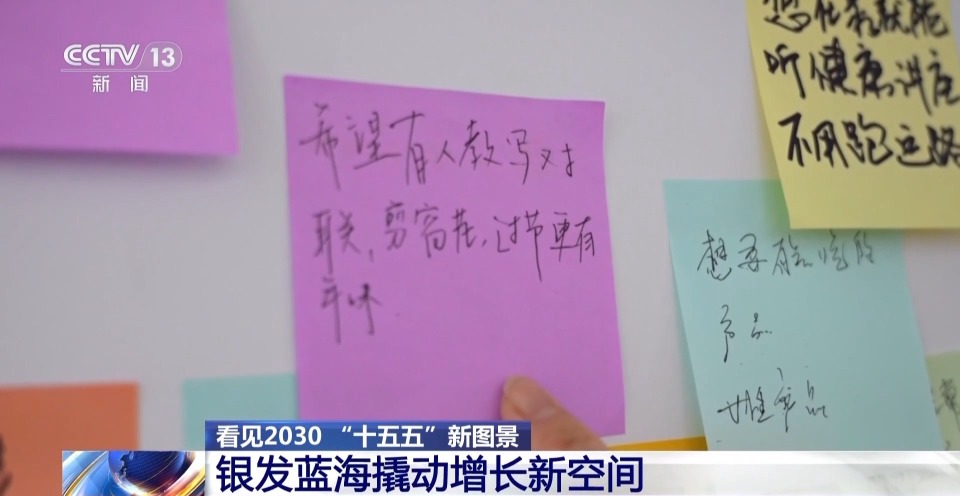 CCTV 13
新闻
希望有人教写对
联,剪窗花,过节更有
年味
听健康讲座
不用跑远路
想要
产品
看见2030 “十五五”新图景
银发蓝海撬动增长新空间